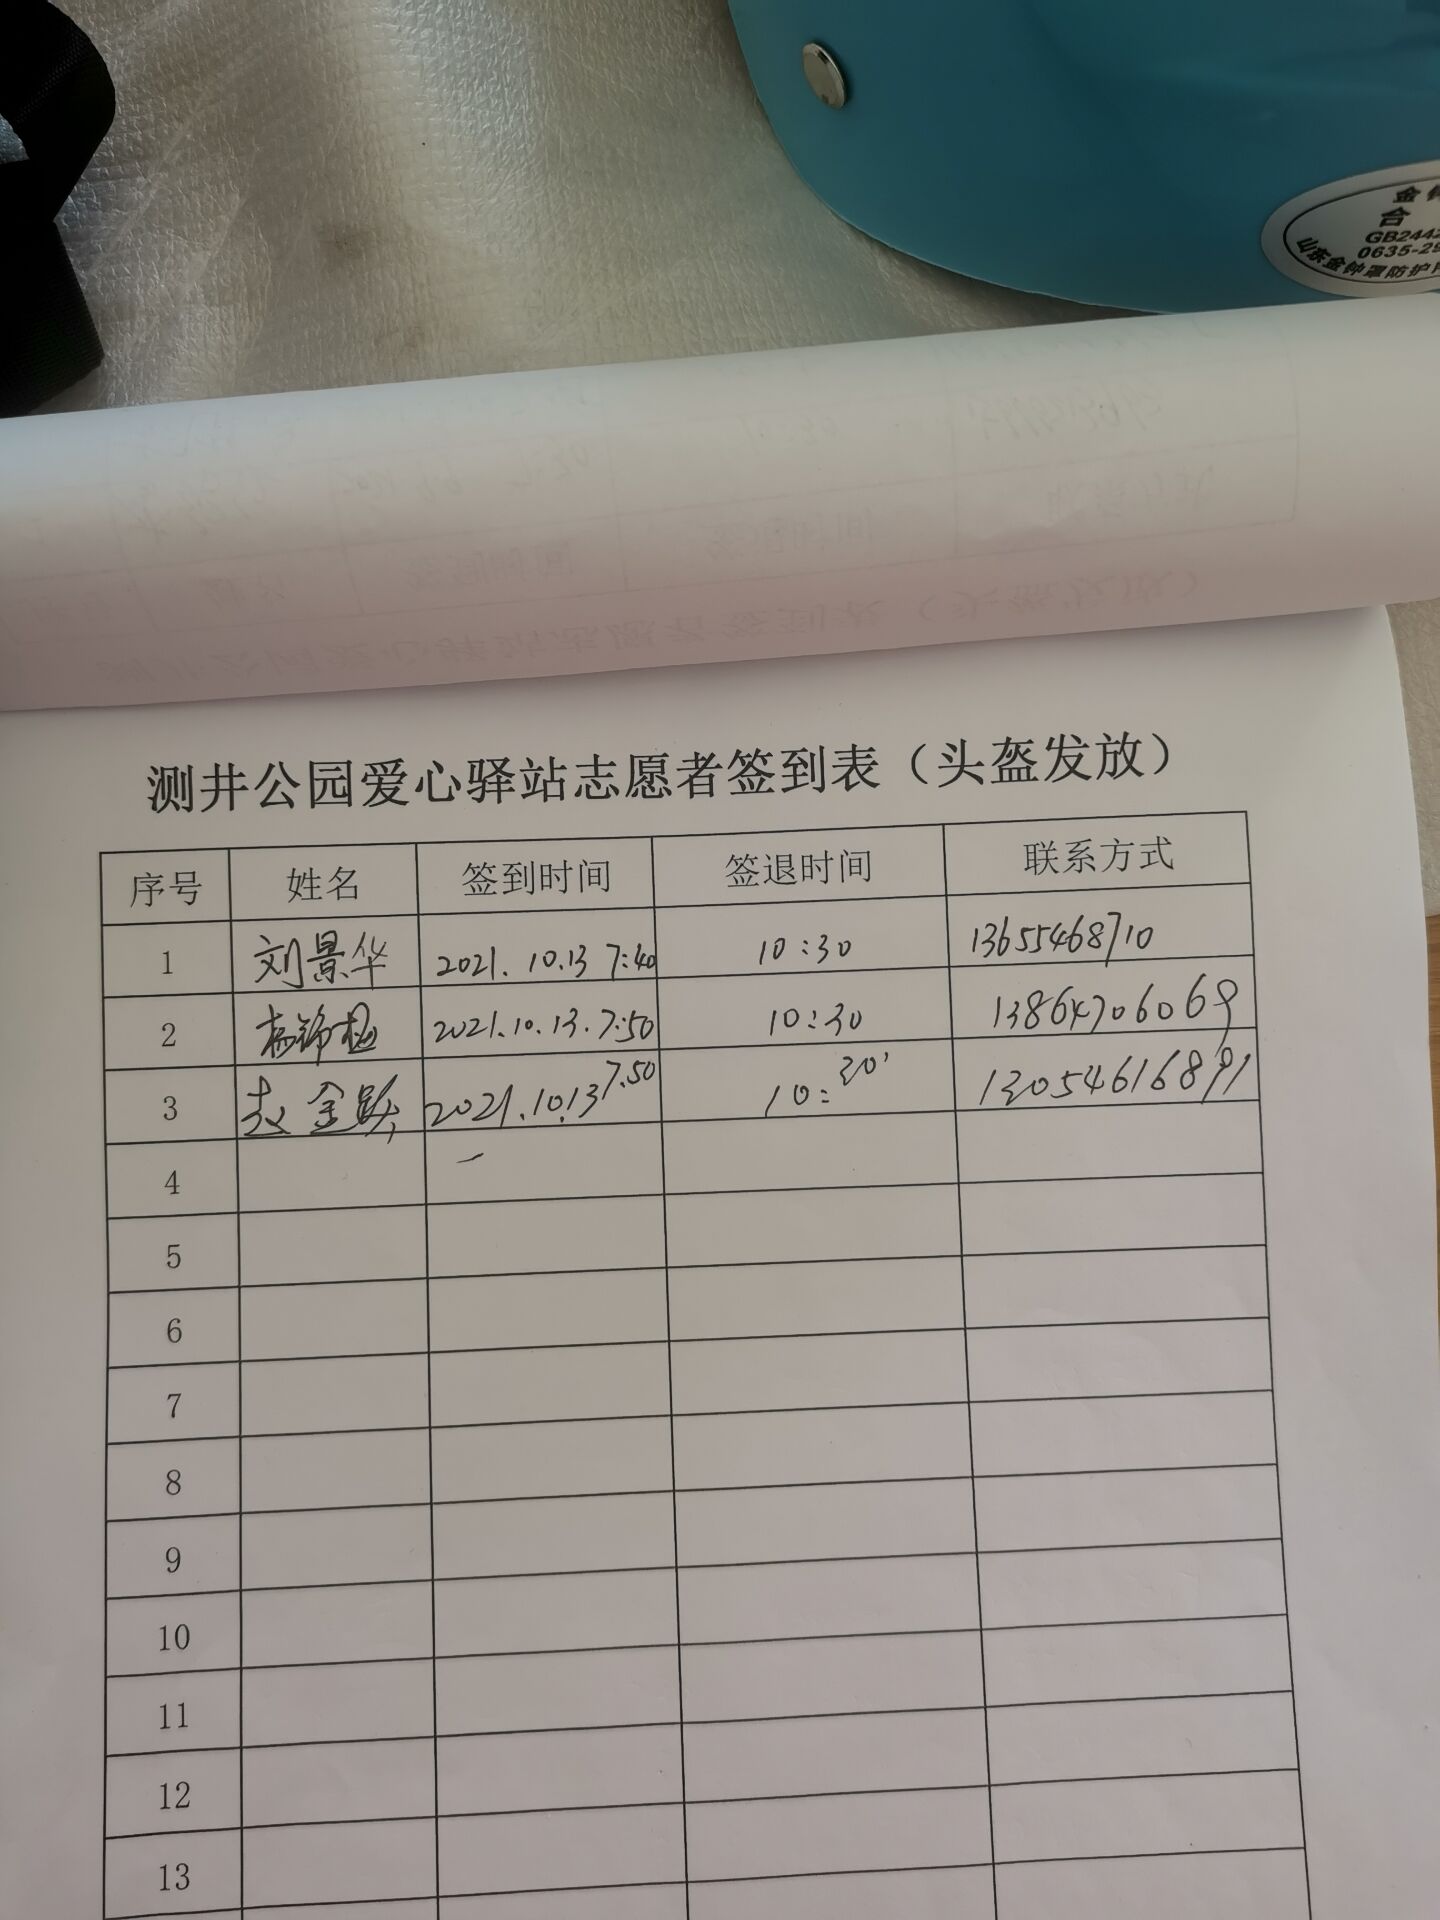 金钟
合
GB2442
0635-29
山东金钟罩防护用
测井公园爱心驿站志愿者签到表（头盔发放）
序号 姓名 签到时间 签退时间 联系方式
1 刘景华 2021.10.13 7:40 10:30 13655468710
2 杨锦梅 2021.10.13.7:50 10:30 13864706069
3 赵金 2021.10.13 7.50 10:30' 13054616891
4
5
6
7
8
9
10
11
12
13